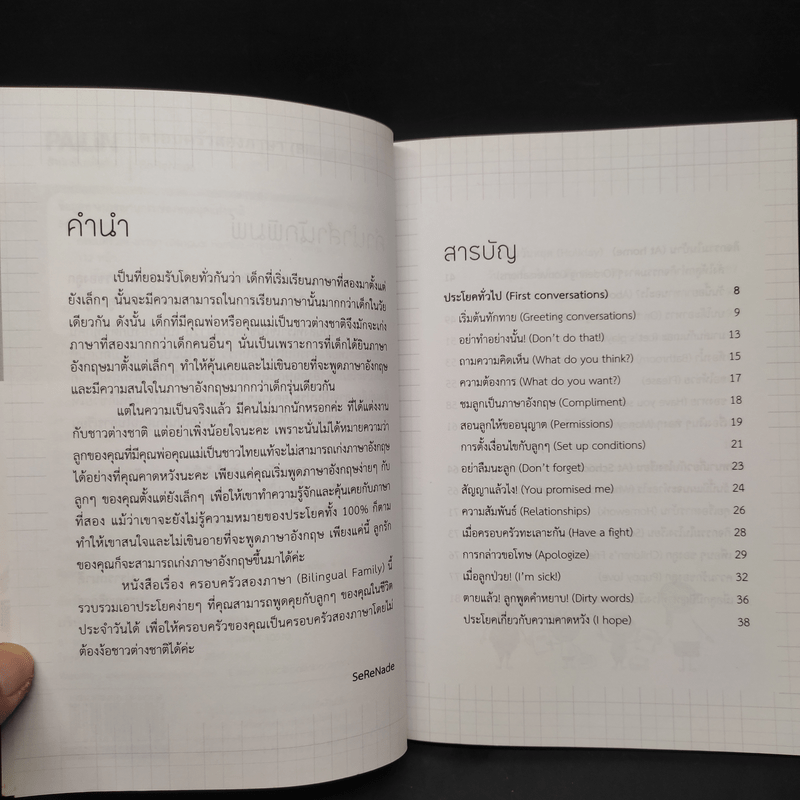 คำนำ
เป็นที่ยอมรับโดยทั่วกันว่า เด็กที่เริ่มเรียนภาษาที่สองมาตั้งแต่
ยังเล็กๆ นั้นจะมีความสามารถในการเรียนภาษานั้นมากกว่าเด็กในวัย
เดียวกัน ดังนั้น เด็กที่มีคุณพ่อหรือคุณแม่เป็นชาวต่างชาติจึงมักจะเก่ง
ภาษาที่สองมากกว่าเด็กคนอื่นๆ นั่นเป็นเพราะการที่เด็กได้ยินภาษา
อังกฤษมาตั้งแต่เล็กๆ ทำให้คุ้นเคยและไม่เขินอายที่จะพูดภาษาอังกฤษ
และมีความสนใจในภาษาอังกฤษมากกว่าเด็กรุ่นเดียวกัน
แต่ในความเป็นจริงแล้ว มีคนไม่มากนักหรอกค่ะ ที่ได้แต่งงาน
กับชาวต่างชาติ แต่อย่าเพิ่งน้อยใจนะคะ เพราะนั่นไม่ได้หมายความว่า
ลูกของคุณที่มีคุณพ่อคุณแม่เป็นชาวไทยแท้จะไม่สามารถเก่งภาษาอังกฤษ
ได้อย่างที่คุณคาดหวังนะคะ เพียงแค่คุณเริ่มพูดภาษาอังกฤษง่ายๆ กับ
ลูกๆ ของคุณตั้งแต่ยังเล็กๆ เพื่อให้เขาทำความรู้จักและคุ้นเคยกับภาษา
ที่สอง แม้ว่าเขาจะยังไม่รู้ความหมายของประโยคทั้ง 100% ก็ตาม
ทำให้เขาสนใจและไม่เขินอายที่จะพูดภาษาอังกฤษ เพียงแค่นี้ ลูกรัก
ของคุณก็จะสามารถเก่งภาษาอังกฤษขึ้นมาได้ค่ะ
หนังสือเรื่อง ครอบครัวสองภาษา (Bilingual Family) นี้
รวบรวมเอาประโยคง่ายๆ ที่คุณสามารถพูดคุยกับลูกๆ ของคุณในชีวิต
ประจำวันได้ เพื่อให้ครอบครัวของคุณเป็นครอบครัวสองภาษาโดยไม่
ต้องง้อชาวต่างชาติได้ค่ะ
SeReNade
สารบัญ
ประโยคทั่วไป (First conversations) 8
เริ่มต้นทักทาย (Greeting conversations) 9
อย่าทำอย่างนั้น! (Don't do that!) 13
ถามความคิดเห็น (What do you think?) 15
ความต้องการ (What do you want?) 17
ชมลูกเป็นภาษาอังกฤษ (Compliment) 18
สอนลูกให้ขออนุญาต (Permissions) 19
การตั้งเงื่อนไขกับลูกๆ (Set up conditions) 21
อย่าลืมนะลูก (Don't forget) 23
สัญญาแล้วไง! (You promised me) 24
ความสัมพันธ์ (Relationships) 26
เมื่อครอบครัวทะเลาะกัน (Have a fight) 28
การกล่าวขอโทษ (Apologize) 29
เมื่อลูกป่วย! (I'm sick!) 32
ตายแล้ว! ลูกพูดคำหยาบ! (Dirty words) 36
ประโยคเกี่ยวกับความคาดหวัง (I hope) 38